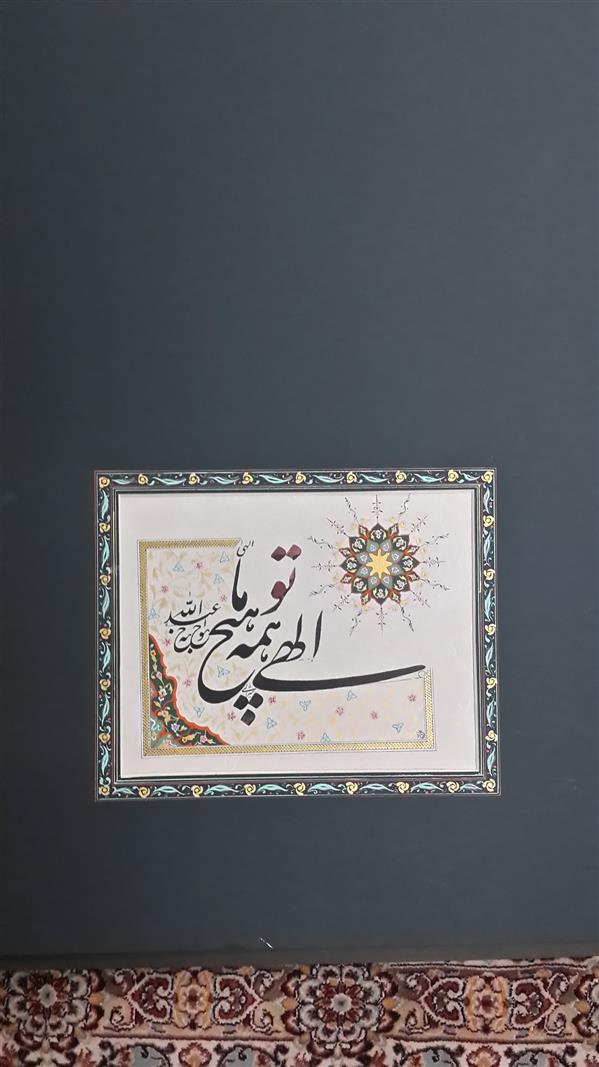 الهی همه تو ما هیچ
خواجه عبدالله